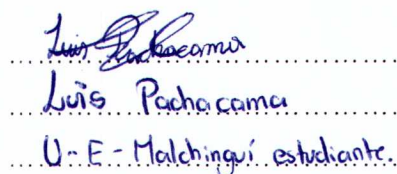 Luis Pachacama
Luis Pachacama
U-E-Malchinguí estudiante.